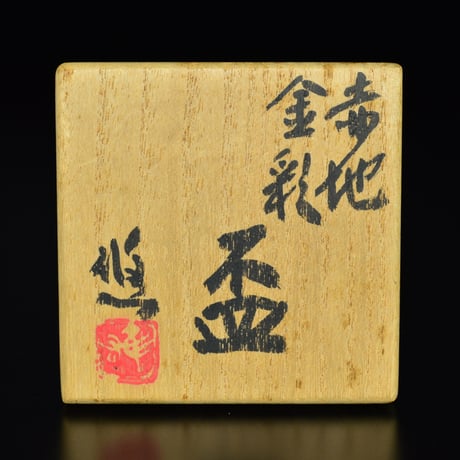 赤地
金彩
盃
悠